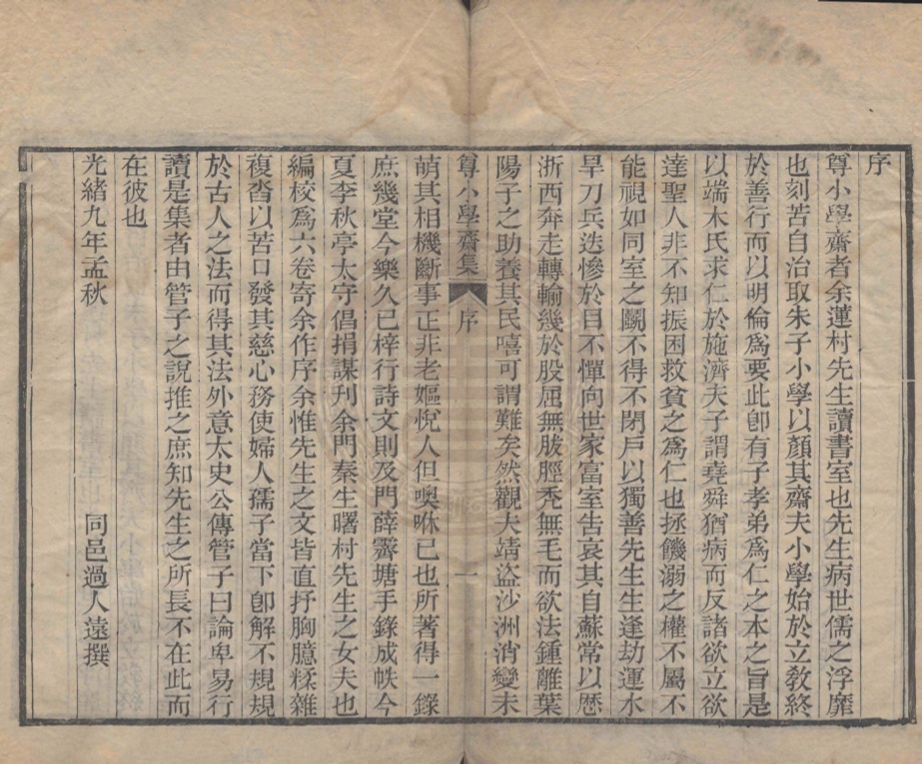 序
尊小學齋者余蓮村先生讀書室也先生病世儒之浮靡
也刻苦自治取朱子小學以顏其齋夫小學始於立敎終
於善行而以明倫爲要此卽有子孝弟爲仁之本之旨是
以端木氏求仁於施濟夫子謂堯舜猶病而反諸欲立欲
達聖人非不知振困救貧之爲仁也拯饑溺之權不屬不
能視如同室之鬭不得不閉戶以獨善先生生逢劫運水
旱刀兵迭慘於目不憚向世家富室告哀其自蘇常以歷
浙西奔走轉輸幾於股屈無胈脛禿無毛而欲法鍾離葉
陽子之助養其民嘻可謂難矣然觀夫靖盜沙洲消變未
尊小學齋集
序
一
萌其相機斷事正非老嫗悅人但噢咻已也所著得一錄
庶幾堂今樂久已梓行詩文則及門薛霽塘手錄成帙今
夏李秋亭太守倡捐謀刋余門秦生曙村先生之女夫也
編校爲六卷寄余作序余惟先生之文皆直抒胸臆糅雜
複沓以苦口發其慈心務使婦人孺子當下卽解不規規
於古人之法而得其法外意太史公傳管子曰論卑易行
讀是集者由管子之說推之庶知先生之所長不在此而
在彼也
光緒九年孟秋　同邑過人遠撰